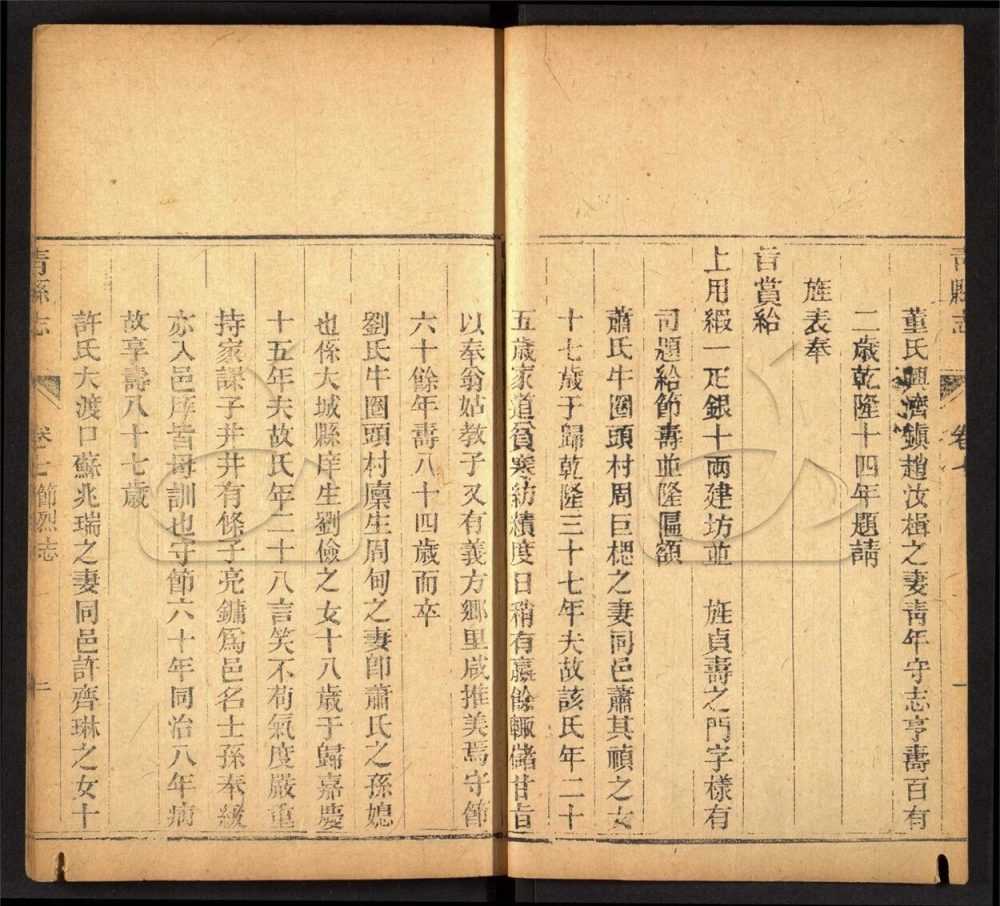 青縣志 卷七 一
董氏興濟鎮趙汝楫之妻靑年守志享壽百有
二歲乾隆十四年題請
旌表奉
旨賞給
上用緞一疋銀十兩建坊並 旌貞壽之門字樣有
司題給節壽並隆匾額
蕭氏牛圈頭村周巨楒之妻同邑蕭其禎之女
十七歲于歸乾隆三十七年夫故該氏年二十
五歲家道貧寒紡績度日稍有嬴餘輙儲甘旨
以奉翁姑教子又有義方鄉里咸推美焉守節
六十餘年壽八十四歲而卒
劉氏牛圈頭村廪生周甸之妻卽蕭氏之孫媳
也係大城縣庠生劉儉之女十八歲于歸嘉慶
十五年夫故氏年二十八言笑不苟氣度嚴重
持家課子井井有條子亮鏞爲邑名士孫奉級
亦入邑庠皆母訓也守節六十年同治八年病
故享壽八十七歲
許氏大渡口蘇兆瑞之妻同邑許齊琳之女十
青縣志 卷七節烈志 二